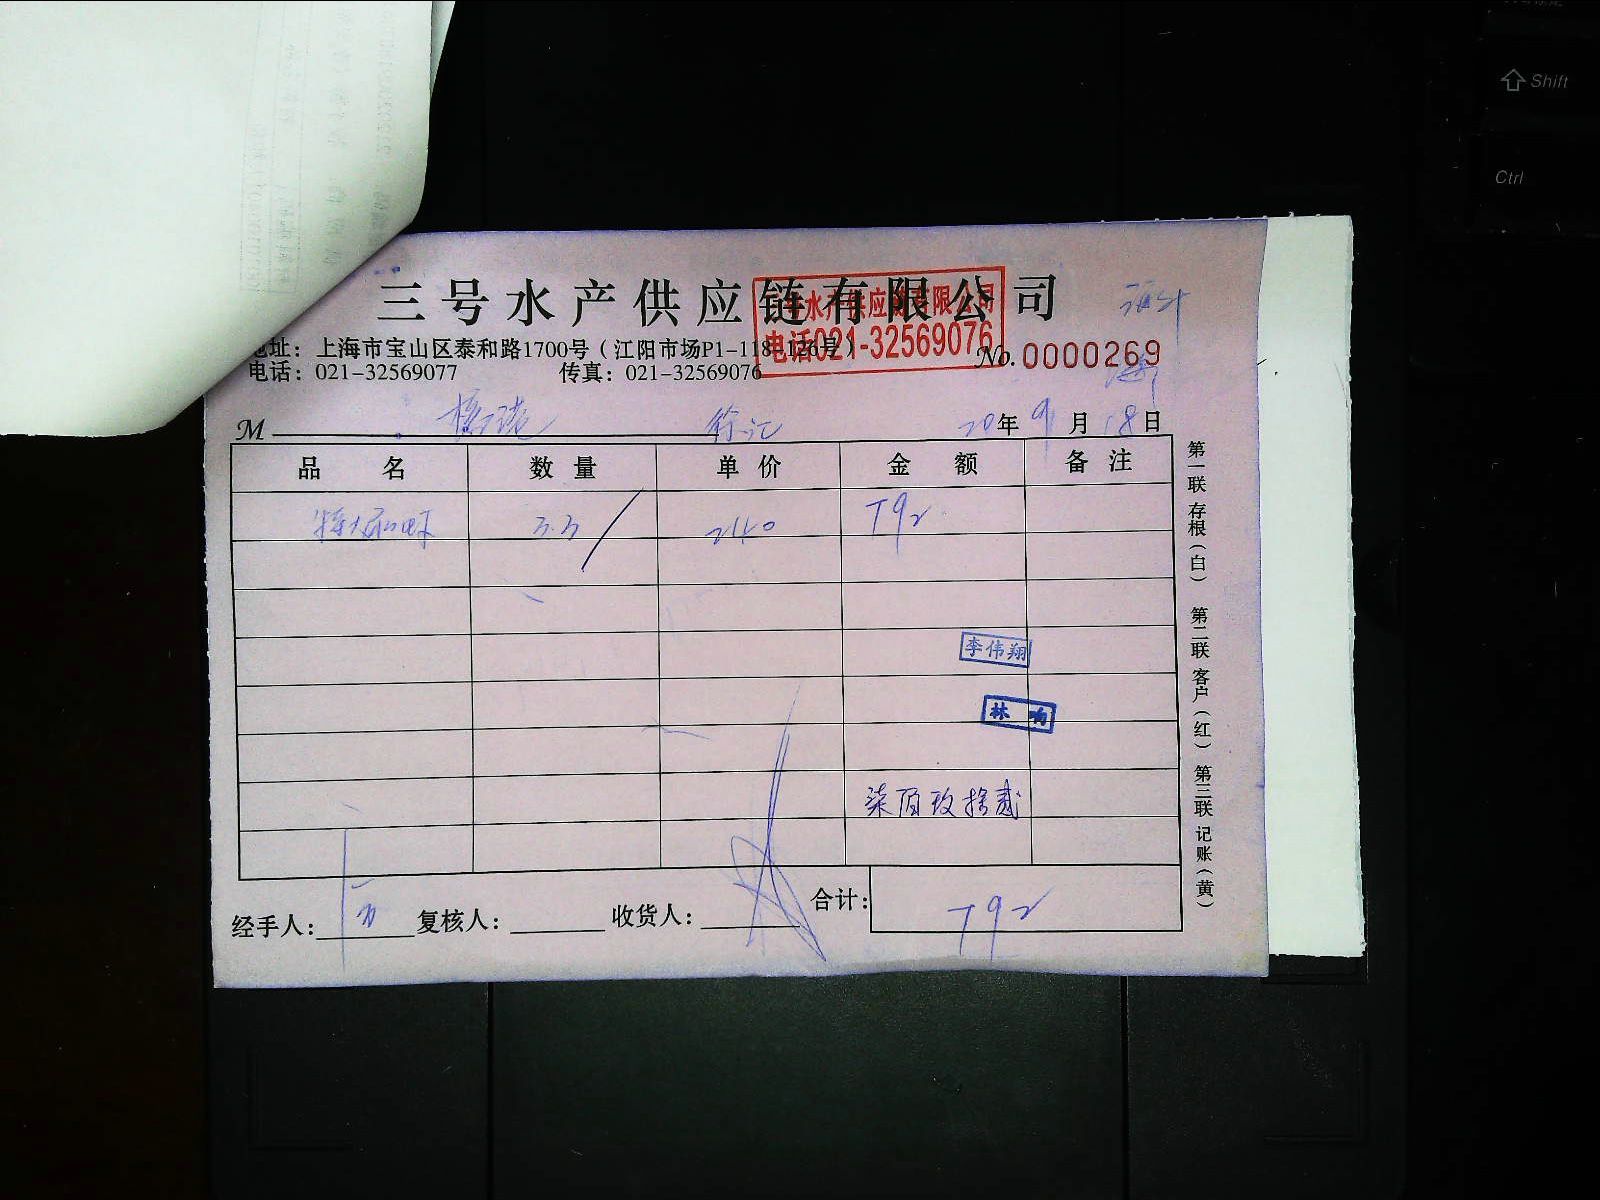 Shift
Ctrl
三号水产供应链有限公司
三号水产供应链有限公司
电话021-32569076
地址：上海市宝山区泰和路1700号（江阳市场P1-118-126号）
电话：021-32569077 传真：021-32569076
No.0000269
M 徐汇 20年9月18日
品名 数量 单价 金额 备注
3.3 240 792
李伟翔
林
柒佰玖拾贰
经手人： 复核人： 收货人： 合计：792
第一联 存根（白） 第二联 客户（红） 第三联 记账（黄）